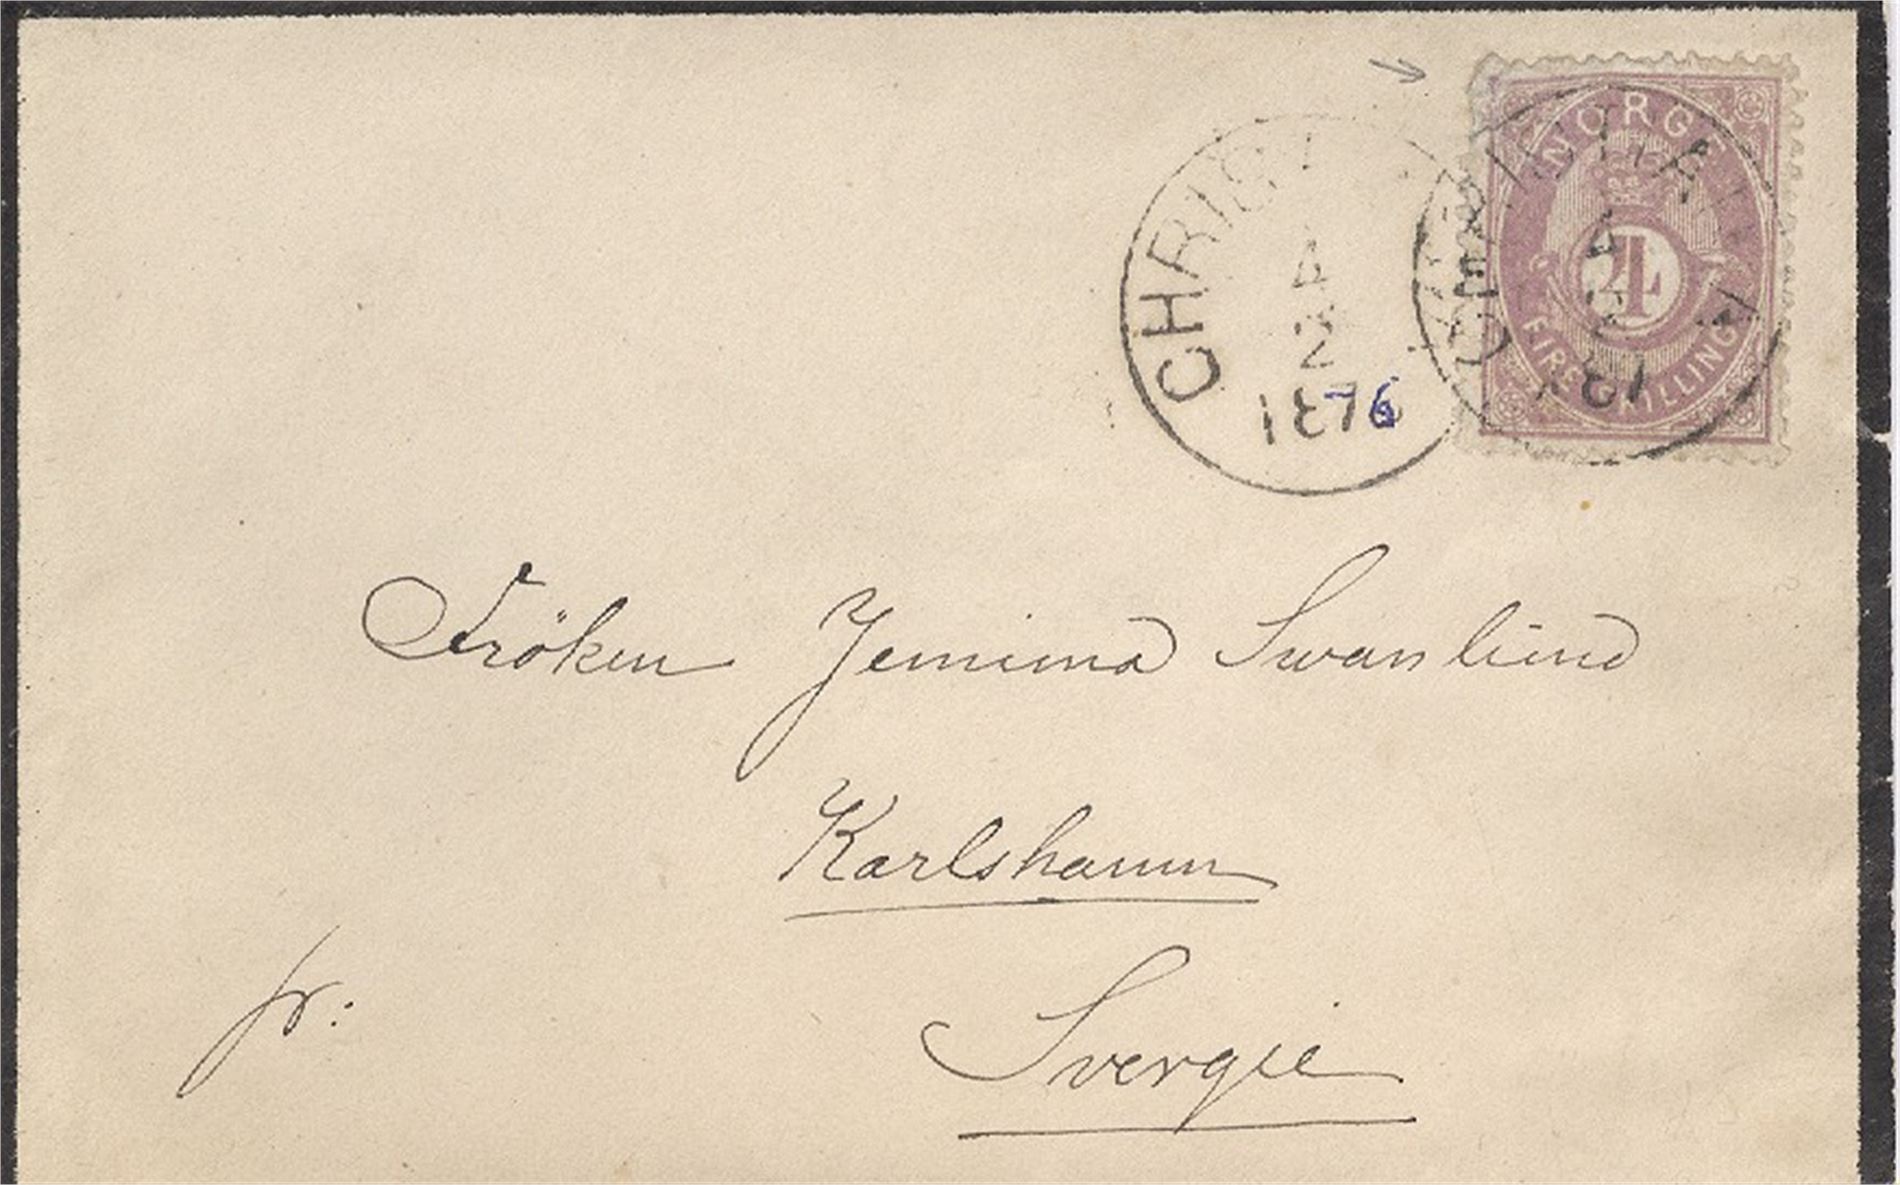 CHRIST
4
2
1876
NORGE
4
FIRE SKILLING
Fröken Jemima Swanlund
Karlshamn
fr:
Svergie